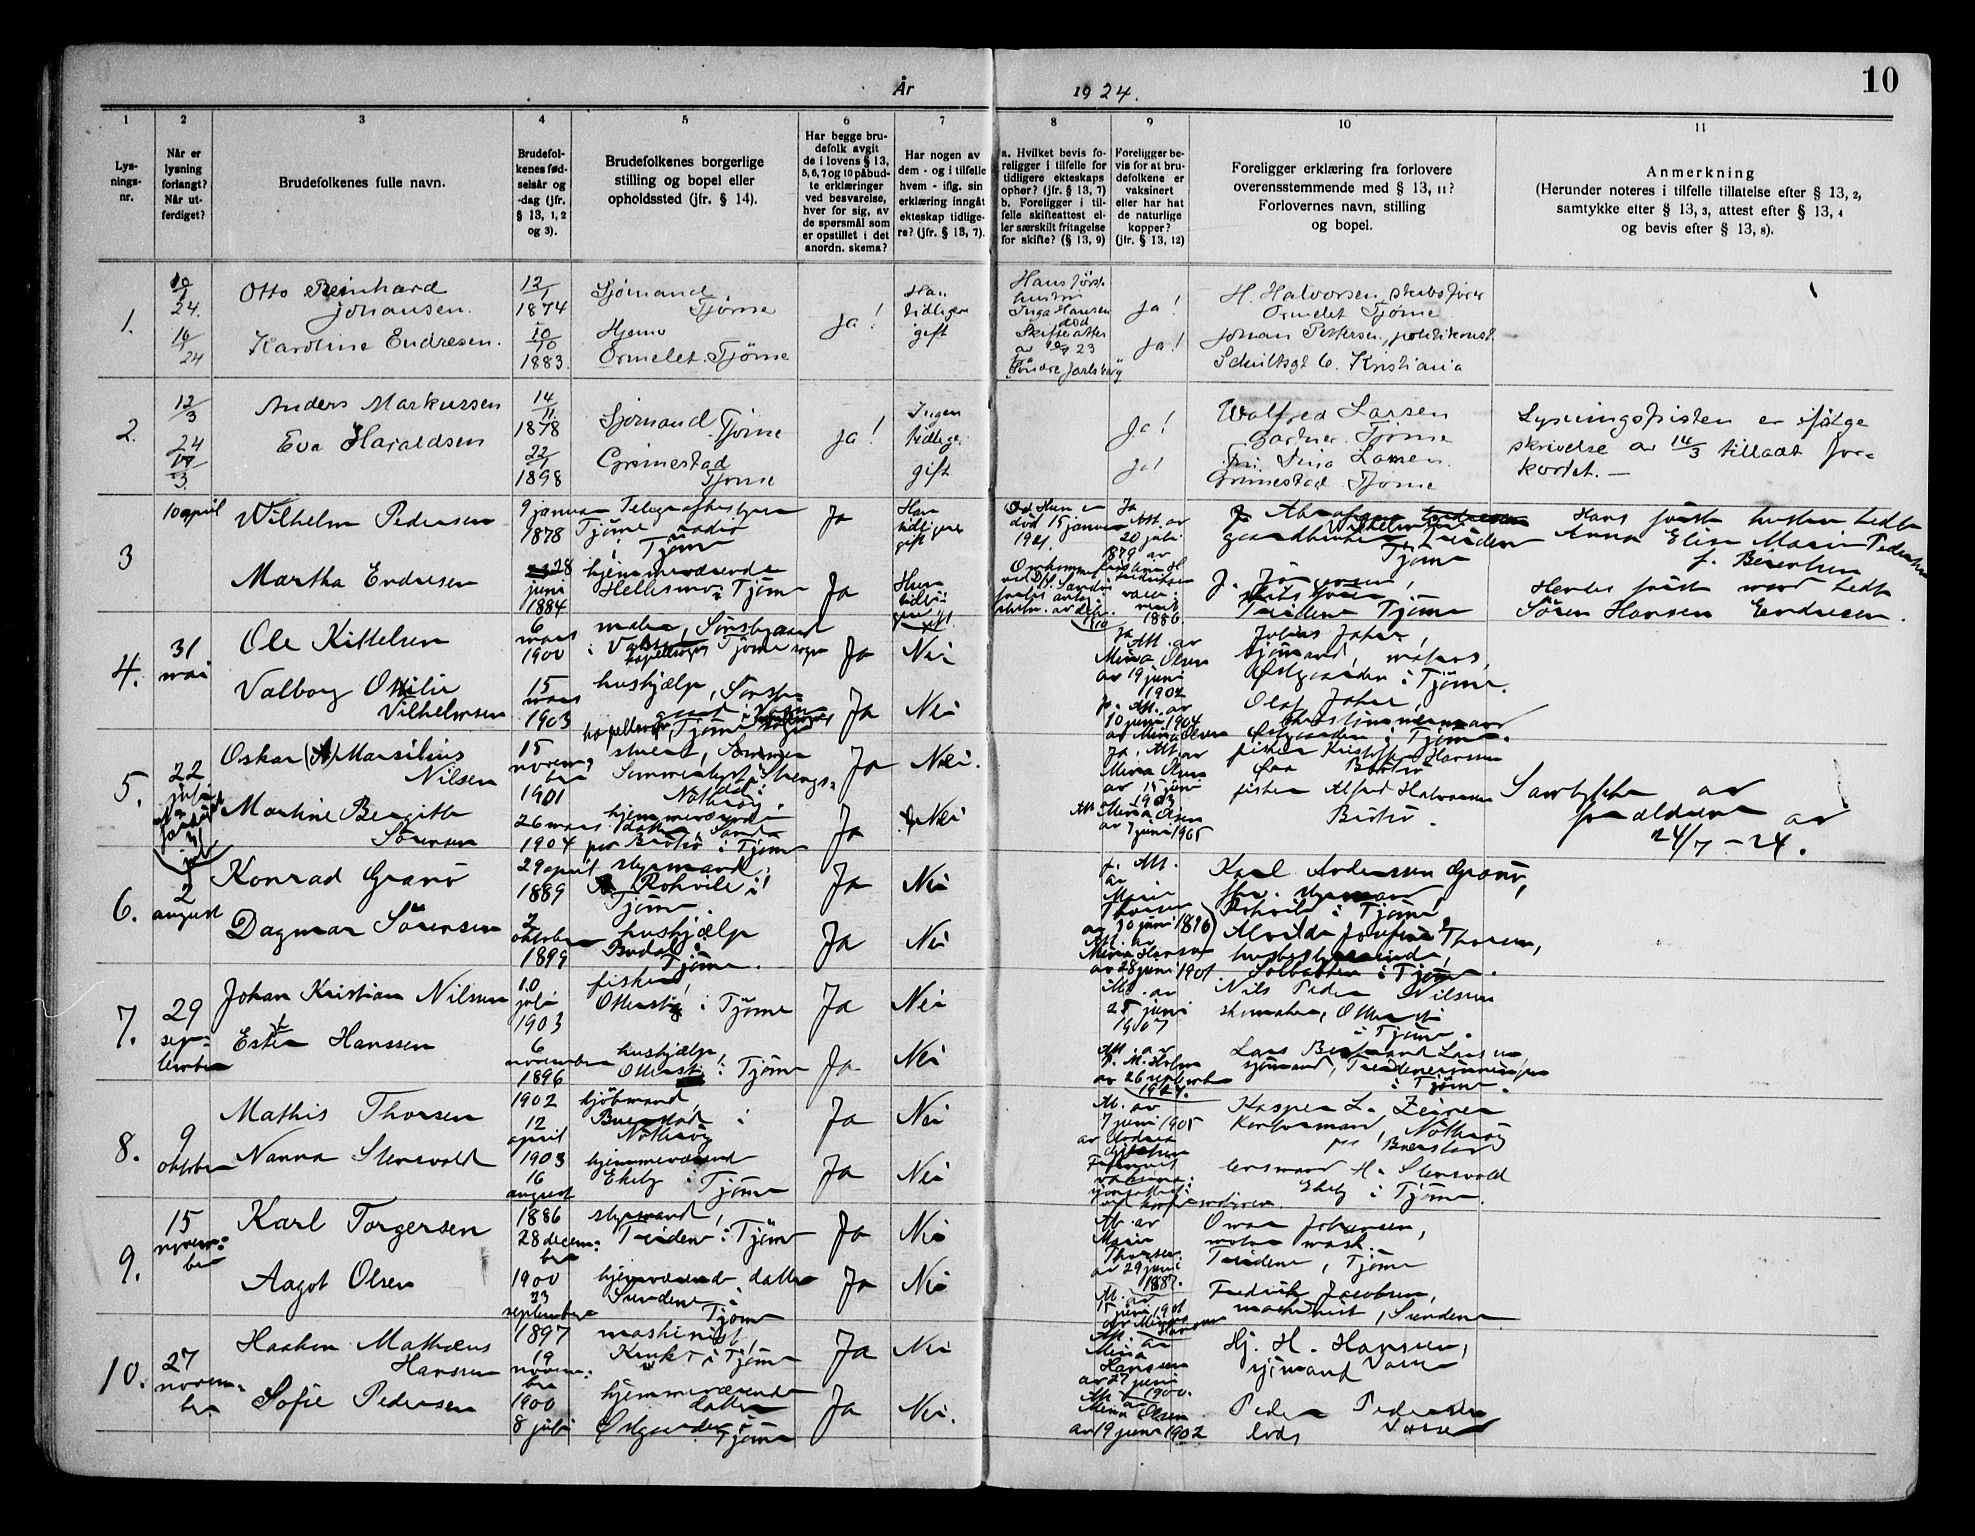 10
År 1924.
1
2
3
4
5
6
7
8
9
10
11
Lys-
nings-
nr.
Når er
lysning
forlangt?
Når ut-
ferdiget?
Brudefolkenes fulle navn.
Brudefol-
kenes fød-
selsår og
-dag (jfr.
§ 13, 1, 2
og 3).
Brudefolkenes borgerlige
stilling og bopel eller
opholdssted (jfr. § 14).
Har begge bru-
defolk avgit
de i lovens § 13,
5, 6, 7 og 10 påbud-
te erklæringer
ved besvarelse,
hver for sig, av
de spørsmål som
er opstillet i det
anordn. skema?
Har nogen av
dem - og i tilfelle
hvem - iflg. sin
erklæring inngåt
ekteskap tidlige-
re? (jfr. § 13, 7).
a. Hvilket bevis fo-
religger i tilfelle for
tidligere ekteskaps
ophør? (jfr. § 13, 7)
b. Foreligger i til-
felle skifteattest el-
ler særskilt fritagelse
for skifte? (§ 13, 9)
Foreligger be-
vis for at bru-
defolkene er
vaksinert
eller har hat
de naturlige
kopper?
(jfr. § 13, 12)
Foreligger erklæring fra forlovere
overensstemmende med § 13, 11?
Forlovernes navn, stilling
og bopel.
Anmerkning
(Herunder noteres i tilfelle tillatelse efter § 13, 2,
samtykke efter § 13, 3, attest efter § 13, 4
og bevis efter § 13, 8).
1.
10/1
24.
16/1
24
Otto Reinhard
Johansen.
Karoline Endresen.
12/1
1874
10/10
1883.
Sjømand
Tjøme
Hjemme
Ormelet. Tjøme
Ja!
Han
tidligere
gift
Hans første
hustru
Inga Hansen
død
Skifteattest
Søndre Jarlsberg
Ja!
Ja!
H. Halvorsen, skibsfører
Ormelet Tjøme
Johan Pettersen, politikonst.
Schultsgt 6. Kristiania
2.
12/3
24
17/3
Anders Markussen
Eva Haraldsen
14/11.
1878
22/1
1898
Sjømand Tjøme
Grimestad
Tjøme
Ja!
Ingen
tidliger
gift
Ja!
Ja!
Walfred Larsen
Gartner. Tjøme
Lina Larsen.
Grimestad Tjøme
Lysningsfristen er ifølge
skrivelse av 14/3 tilladt for-
kortet. —
3
10 april
Wilhelm Pedersen
Martha Endresen
9 januar
1878
28
juni
1884
Telegrafbestyrer
Tjøme radio
i Tjøme
hjemmeværende
Hellesmo i Tjøme
Ja
Ja
Han
tidligere
gift
Hun
tidli-
gere gift
død 15 januar
1921.
Ja
Att. av
20 juli
1879 av
1886
Tjøme
J. Jörgensen,
Treidene Tjøme
Hans første hustru hedte
Anna Elise Marie Pedersen
f. Berentsen
Hendes første mand hedte
Sören Hansen Endresen.
4.
31
mai
Ole Kittelsen
Valborg Otilie
Vilhelmsen
6
mars
1900
15
mars
1903
kapellsogn Tjøme sogn
hushjælp,
Ja
Ja
Nei
Nei
Ja
Att. av
Mina Olsen
av 19 juni
1902
Ja. Att. av
10 juni 1904
av Mina Olsen
Julius Johre,
sjømand, matros,
Østgaarden i Tjøme.
Olaf Johre,
Østgaarden i Tjøme.
5.
22
juli
31
juli
Oskar (A) Marsilius
Nilsen
Martine Bergitte
Sörensen
15
novem-
ber
1901
26 mars
1904
Nötterøy.
hjemmeværende
datter
Brötsö i Tjøme
Ja
Ja
Nei.
Nei
Ja. Att. av
Mina Olsen
av 15 juni
1903.
Att. Mina Olsen
av 7 juni 1905
fisker Kristoffer Hansen
Brötsö
fisker Alfred Halvorsen
Brötsö.
Samtykke av
forældrene av
24/7 – 24.
6.
2
august
Konrad Granö
Dagmar Sörensen
29 april
1889
2
oktober
1899
styrmand,
Rohvile i
Tjøme.
hushjælp
Budal i
Tjøme.
Ja
Ja
Nei
Nei
J. Att.
av
Marie
Thorsen
av 30 juni 1890
Att. av
Mina Hansen
av 28 juni 1901
Karl Andersen Granö,
fhv. styrmand
Rohvile i Tjøme
Alvilde Josefine Thorsen,
husbestyrerinde,
Solbakken i Tjøme.
7.
29
sep-
tember
Johan Kristian Nilsen
Ester Hanssen
10
juli
1903
6
november
1896
fisker,
Otterstig i Tjøme
hushjælp,
Otterstig i Tjøme
Ja
Ja
Nei
Nei
Att. av
25 juni
1907
Att. av
M. Holm
av 26 september
1924.
Nils Peder Nilsen
skomaker, Otterstig
i Tjøme.
Lars Larsen,
sjømand,
i Tjøme.
8.
9
oktober
Mathis Thorsen
Nanna Stensvold
1902
12
april
1903
16
august
kjøbmand
Buerstad i
Nötterøy
hjemmeværende
Ekely i Tjøme
Ja
Ja
Nei
Nei
Att. av
7 juni 1905
av Andrea
Kasper L. Zeiner
Kontormand, Nötterøy
per Buerstad
lensmand H. Stensvold
Ekely i Tjøme.
9.
15
novem-
ber
Karl Torgersen
Aagot Olsen
1886
28 decem-
ber
1900
23
september
styrmand,
Treidene i Tjøme
hjemmeværende datter
Sundene i
Tjøme
Ja
Ja
Nei
Nei
Att. av
Marie
Thorsen.
av 29 juni
1887.
Att. av
15 juni 1901
av Mina
Hansen
Omar Johansen,
Treidene, Tjøme
Fredrik Jacobsen,
maskinist, Sundene
10.
27
novem-
ber
Haakon Mathæus
Hanssen
Sofie Pedersen
1897
19
novem-
ber
1900
8 juli
maskinist,
i Tjøme
hjemmeværende
datter
Østgaarden i
Tjøme
Ja
Ja
Nei
Nei.
Att. av
Mina
Hanssen
av 27 juni
1900.
Att. av
Mina Olsen
av 19 juni 1902
Hj. H. Hansen,
sjømand
Peder Pedersen
lods